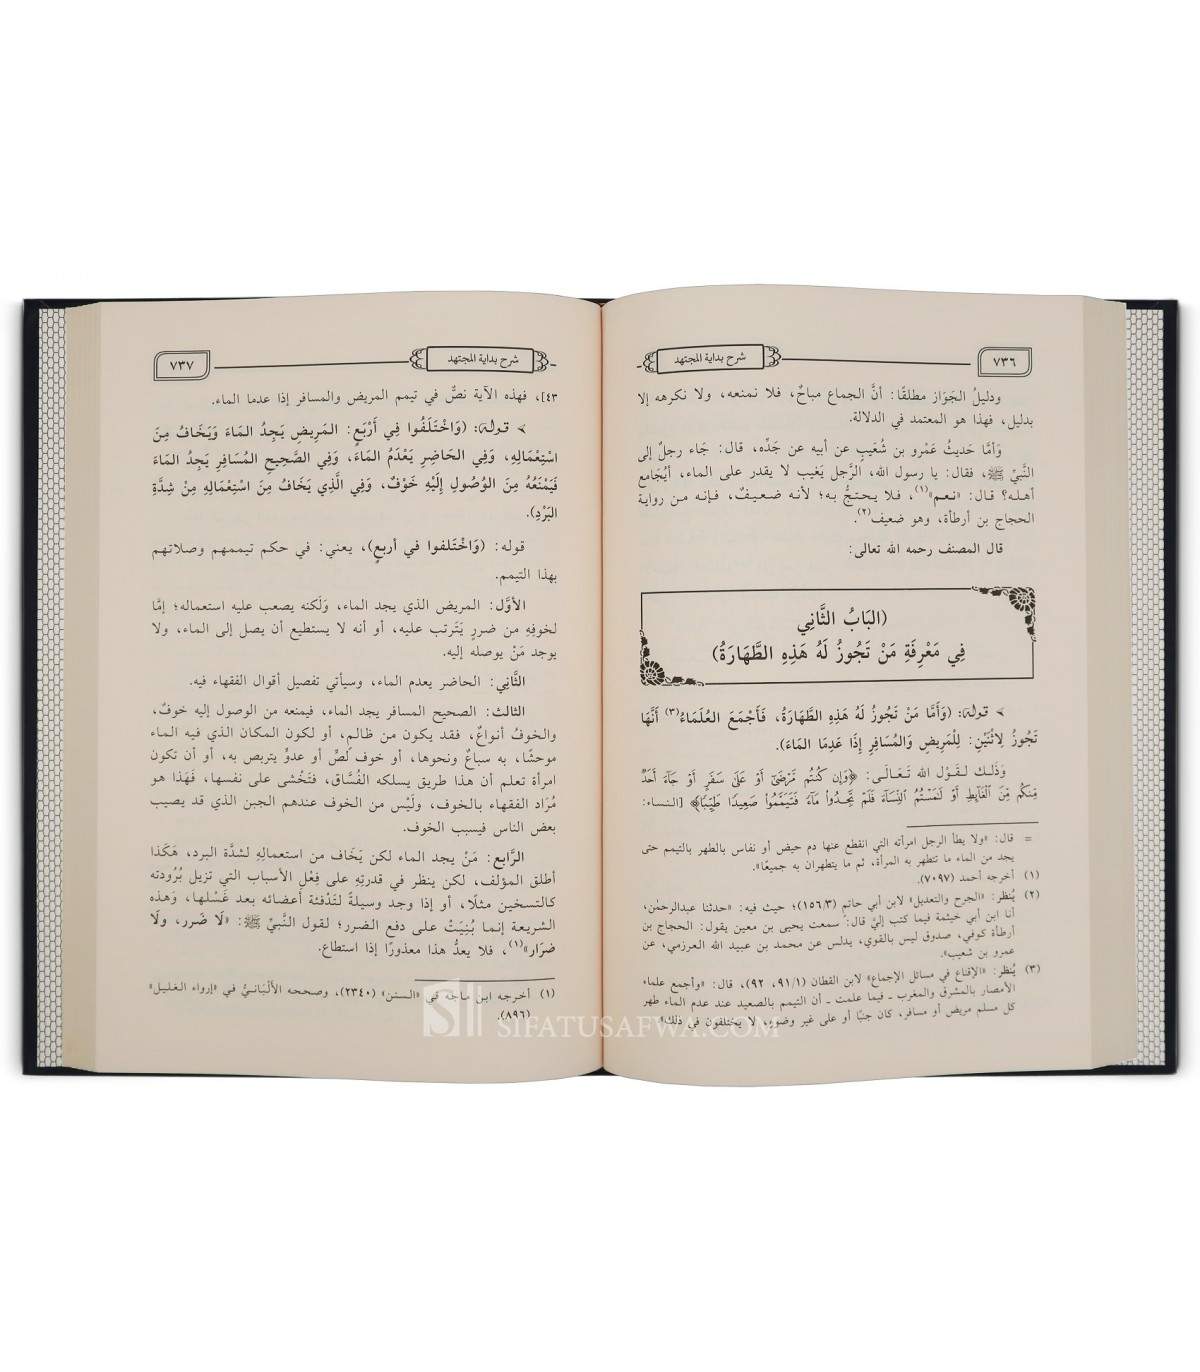 ٧٣٦
شرح بداية المجتهد
ودليلُ الجَوَاز مطلقًا: أنَّ الجماع مباحٌ، فلا نمنعه، ولا نكرهه إلا
بدليل، فهذا هو المعتمد في الدلالة.
وَأمَّا حَديثُ عَمْرو بن شُعَيبٍ عن أبيه عن جَدِّه، قال: جَاء رجلٌ إلى
النَّبيِّ ﷺ، فقال: يا رسول الله، الرَّجل يَغيب لا يقدر على الماء، أيُجَامع
أهله؟ قال: «نعم»(١)، فلا يحتجُّ به؛ لأنه ضعيفٌ، فإنه من رواية
الحجاج بن أرطأة، وهو ضعيف(٢).
قال المصنف رحمه الله تعالى:
(البَابُ الثَّانِي
فِي مَعْرِفَةِ مَنْ تَجُوزُ لَهُ هَذِهِ الطَّهَارَةُ)
➤ قوله: (وَأَمَّا مَنْ تَجُوزُ لَهُ هَذِهِ الطَّهَارَةُ، فَأَجْمَعَ العُلَمَاءُ(٣) أَنَّهَا
تَجُوزُ لِاثْنَيْنِ: لِلْمَرِيضِ وَالمُسَافِرِ إِذَا عَدِمَا المَاءَ).
وَذَلك لقَوْل الله تَعَالَى: ﴿وَإِن كُنتُم مَّرْضَىٰٓ أَوْ عَلَىٰ سَفَرٍ أَوْ جَآءَ أَحَدٌ
مِّنكُم مِّنَ ٱلْغَآئِطِ أَوْ لَٰمَسْتُمُ ٱلنِّسَآءَ فَلَمْ تَجِدُوا۟ مَآءً فَتَيَمَّمُوا۟ صَعِيدًا طَيِّبًا﴾ [النساء:
= قال: «ولا يطأ الرجل امرأته التي انقطع عنها دم حيض أو نفاس بالطهر بالتيمم حتى
يجد من الماء ما تتطهر به المرأة، ثم ما يتطهران به جميعًا».
(١) أخرجه أحمد (٧٠٩٧).
(٢) يُنظر: «الجرح والتعديل» لابن أبي حاتم (١٥٦/٣)؛ حيث فيه: «حدثنا عبدالرحمٰن،
أنا ابن أبي خيثمة فيما كتب إليَّ قال: سمعت يحيى بن معين يقول: الحجاج بن
أرطأة كوفي، صدوق ليس بالقوي، يدلس عن محمد بن عبيد الله العرزمي، عن
عمرو بن شعيب».
(٣) يُنظر: «الإقناع في مسائل الإجماع» لابن القطان (٩١/١، ٩٢)، قال: «وأجمع علماء
الأمصار بالمشرق والمغرب ـ فيما علمت ـ أن التيمم بالصعيد عند عدم الماء طهر
كل مسلم مريض أو مسافر، كان جنبًا أو على غير وضوء، لا يختلفون في ذلك».
شرح بداية المجتهد
٧٣٧
٤٣]، فهذه الآية نصٌّ في تيمم المريض والمسافر إذا عدما الماء.
➤ قوله: (وَاخْتَلَفُوا فِي أَرْبَعٍ: المَرِيضِ يَجِدُ المَاءَ وَيَخَافُ مِنَ
اسْتِعْمَالِهِ، وَفِي الحَاضِرِ يَعْدَمُ المَاءَ، وَفِي الصَّحِيحِ المُسَافِرِ يَجِدُ المَاءَ
فَيَمْنَعُهُ مِنَ الوُصُولِ إِلَيْهِ خَوْفٌ، وَفِي الَّذِي يَخَافُ مِنَ اسْتِعْمَالِهِ مِنْ شِدَّةِ
البَرْدِ).
قوله: (وَاخْتَلفوا في أربعٍ)، يعني: في حكم تيممهم وصلاتهم
بهذا التيمم.
الأوَّل: المريض الذي يجد الماء، وَلَكنه يصعب عليه استعماله؛ إمَّا
لخوفِهِ من ضررٍ يَتَرتب عليه، أو أنه لا يستطيع أن يصل إلى الماء، ولا
يوجد مَنْ يوصله إليه.
الثَّانِي: الحاضر يعدم الماء، وسيأتي تفصيل أقوال الفقهاء فيه.
الثالث: الصحيح المسافر يجد الماء، فيمنعه من الوصول إليه خوفٌ،
والخوفُ أنواعٌ، فقد يكون من ظالمٍ، أو لكون المكان الذي فيه الماء
موحشًا، به سباعٌ ونحوها، أو خوف لصٍّ أو عدوٍّ يتربص به، أو أن تكون
امرأة تعلم أن هذا طريق يسلكه الفُسَّاق، فتَخْشى على نفسها، فَهَذا هو
مُرَاد الفقهاء بالخوف، ولَيْس من الخوف عندهم الجبن الذي قد يصيب
بعض الناس فيسبب الخوف.
الرَّابع: مَنْ يجد الماء لكن يَخَاف من استعمالِهِ لشدَّة البرد، هَكَذا
أطلق المؤلف، لكن ينظر في قدرتِهِ على فِعْلِ الأسباب التي تزيل بُرُودته
كالتسخين مثلًا، أو إذا وجد وسيلةً لتَدْفئة أعضائه بعد غَسْلها، وَهَذه
الشريعة إنما بُنِيَتْ على دفع الضرر؛ لقول النَّبيِّ ﷺ: «لَا ضَرر، ولَا
ضرَار»(١)، فلا يعدُّ هذا معذورًا إذا استطاع.
(١) أخرجه ابن ماجه في «السنن» (٢٣٤٠)، وصححه الأَلْبَانيُّ في «إرواء الغليل»
(٨٩٦).
SIFATUSAFWA.COM